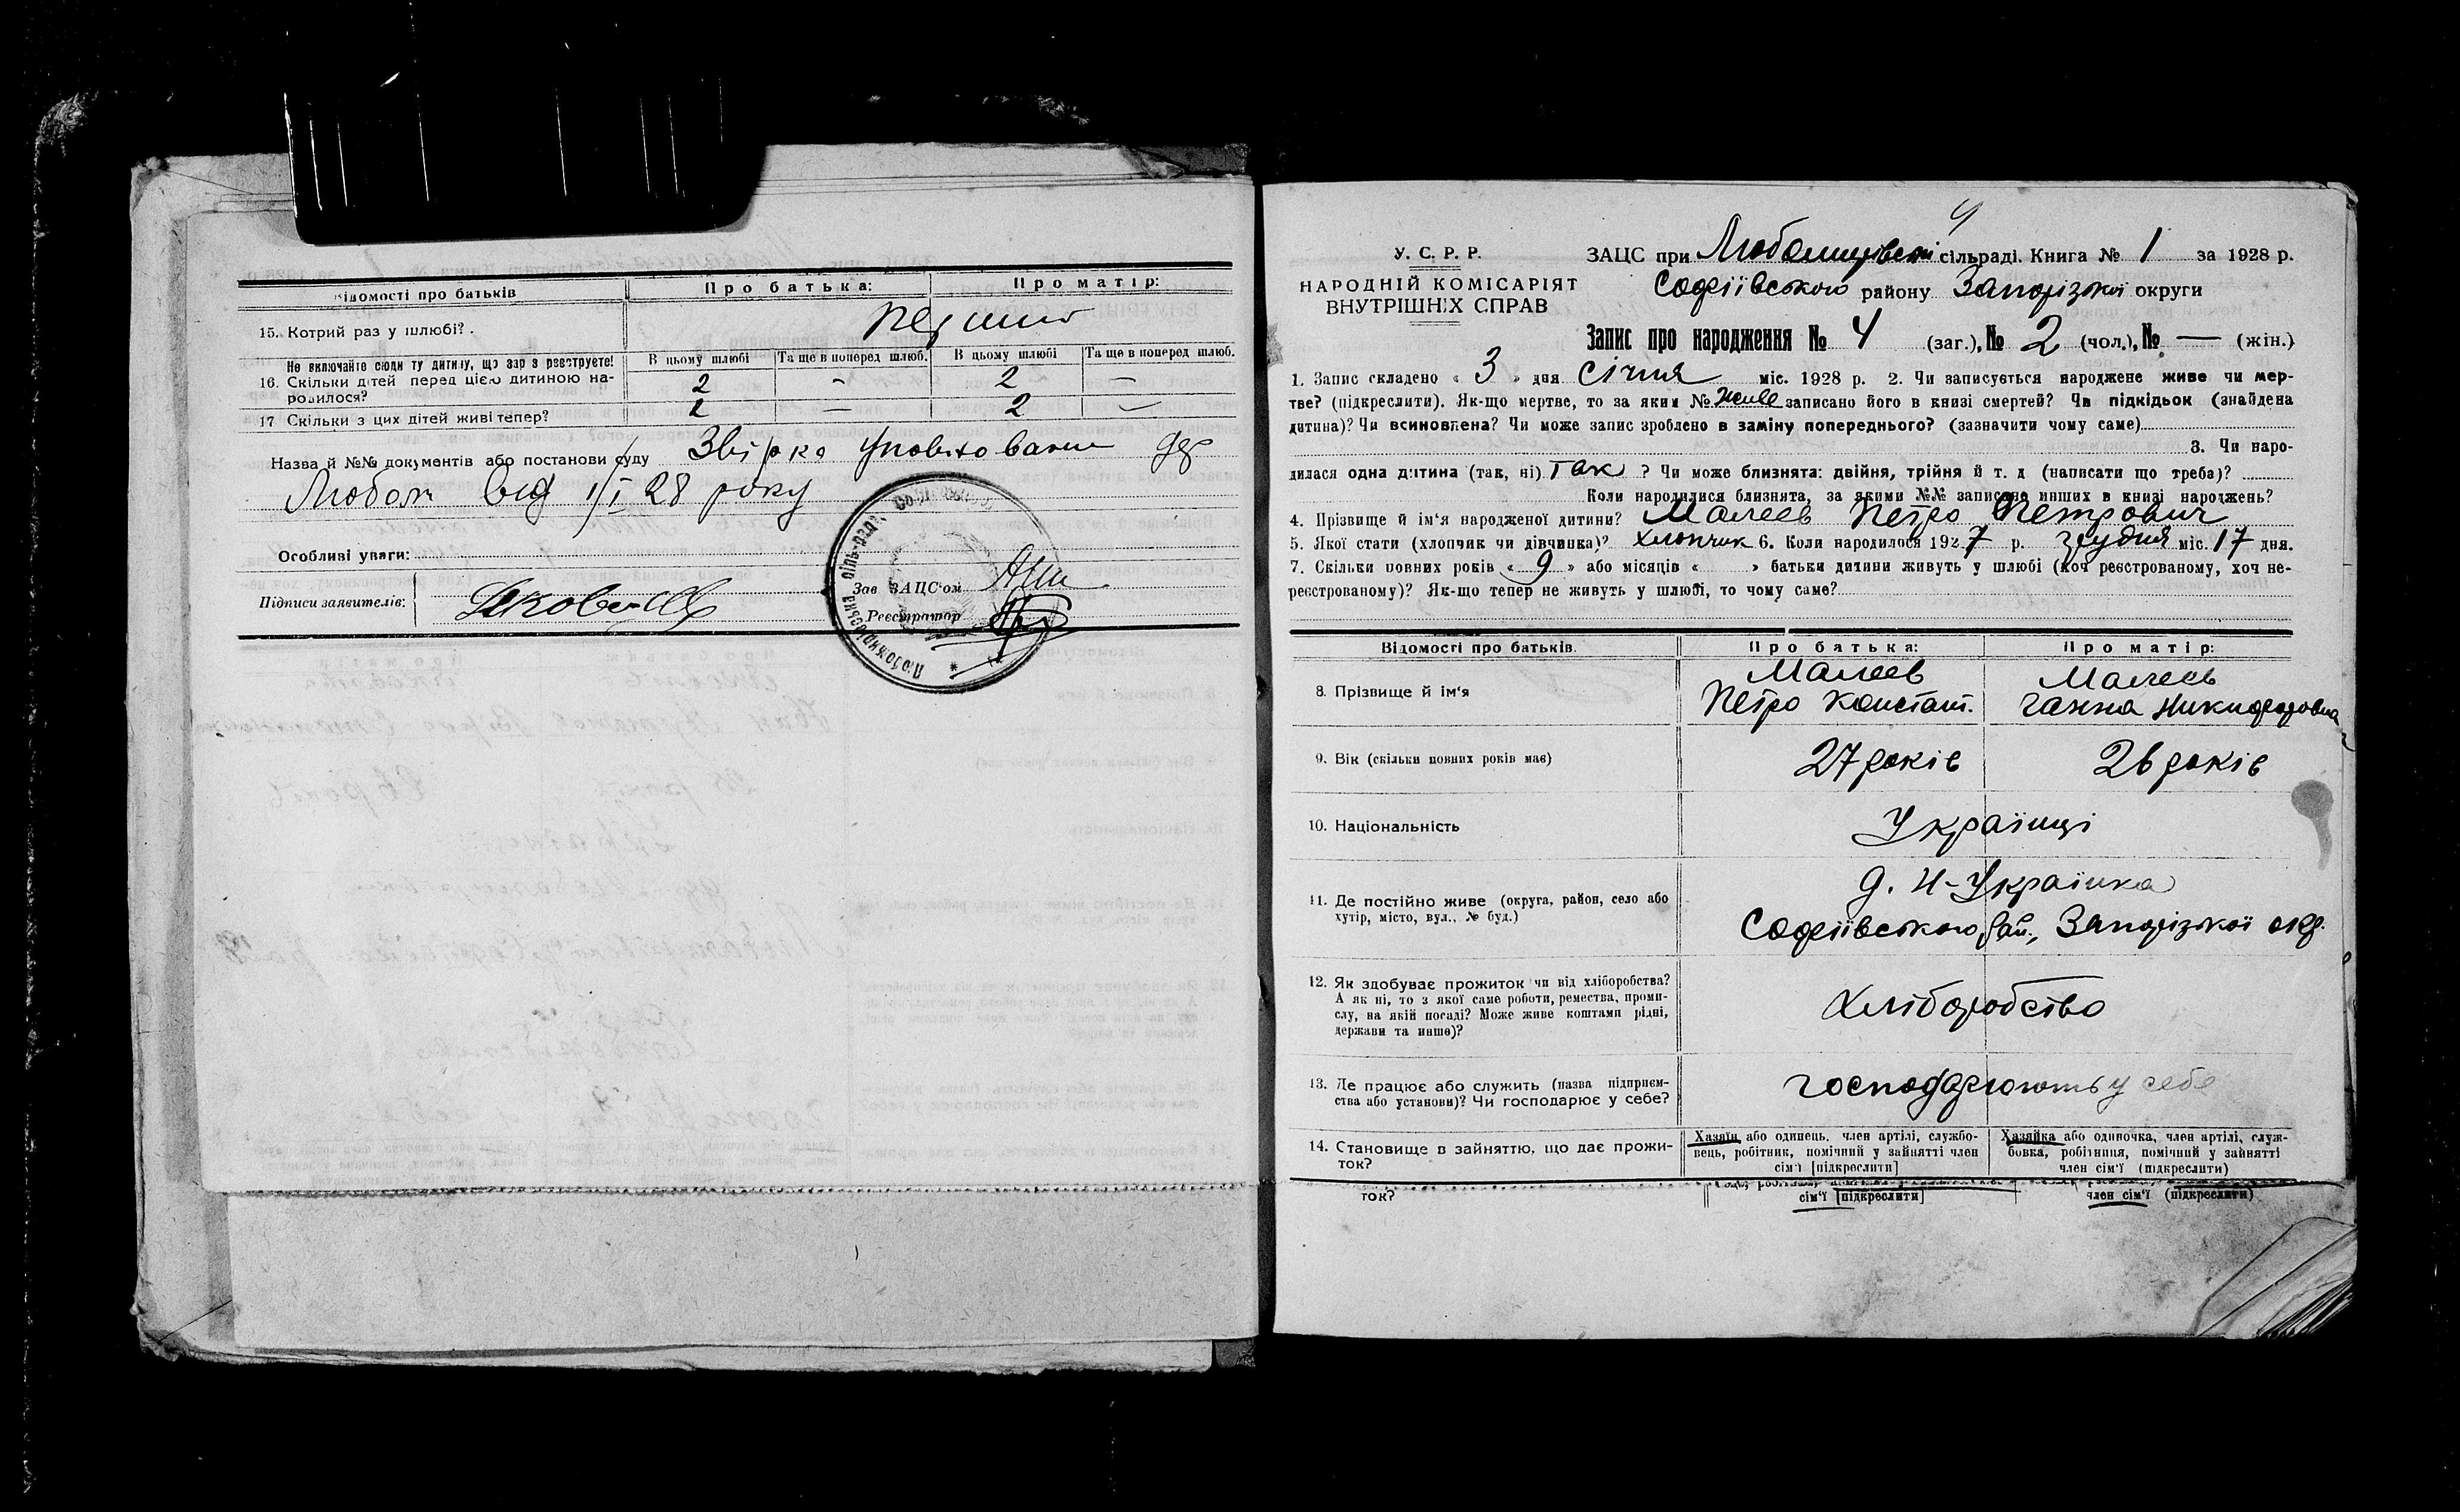 Відомості про батьків
Про батька:
Про матір:
15. Котрий раз у шлюбі?
перший
Не включайте сюди ту дитину, що зараз реєструєте!
В цьому шлюбі
Та ще в поперед шлюб.
В цьому шлюбі
Та ще в поперед шлюб.
16. Скільки дітей перед цією дитиною на-
родилося?
2 – 2 —
17 Скільки з цих дітей живі тепер?
2 — 2 —
Назва й №№ документів або постанови суду
від 1/I 28 року
Особливі уваги:
Підписи заявителів:
Зав ЗАЦС'ом
Реєстратор
У. С. Р. Р.
НАРОДНІЙ КОМІСАРІЯТ
ВНУТРІШНІХ СПРАВ
4
ЗАЦС при Любомирівській сільраді. Книга № 1 за 1928 р.
Софіївського району Запорізької округи
Запис про народження № 4 (заг.), № 2 (чол.), № — (жін.)
1. Запис складено « 3 » дня січня міс. 1928 р. 2. Чи записується народжене живе чи мер-
тве? (підкреслити). Як-що мертве, то за яким № живе записано його в книзі смертей? Чи підкідьок (знайдена
дитина)? Чи всиновлена? Чи може запис зроблено в заміну попереднього? (зазначити чому саме)
3. Чи наро-
дилася одна дитина (так, ні) так ? Чи може близнята: двійня, трійня й т. д (написати що треба)?
Коли народилися близнята, за якими №№ записано инших в книзі народжень?
4. Прізвище й ім'я народженої дитини? Малеев Петро Петрович
5. Якої стати (хлопчик чи дівчинка)? хлопчик 6. Коли народилося 1927 р. грудня міс. 17 дня.
7. Скільки повних років « 9 » або місяців « » батьки дитини живуть у шлюбі (хоч реєстрованому, хоч не-
реєстрованому)? Як-що тепер не живуть у шлюбі, то чому саме?
Відомості про батьків.
Про батька:
Про матір:
8. Прізвище й ім'я
Малеев
Петро Констант.
Малеев
Ганна Никифоровна
9. Вік (скільки повних років має)
27 років
26 років
10. Національність
Українці
11. Де постійно живе (округа, район, село або
хутір, місто, вул., № буд.)
д. Н-Українка
Софіївського рай., Запорізької окр.
12. Як здобуває прожиток чи від хліборобства?
А як ні, то з якої саме роботи, ремества, проми-
слу, на якій посаді? Може живе коштами рідні,
держави та инше)?
Хліборобство
13. Де працює або служить (назва підприєм-
ства або установи)? Чи господарює у себе?
господарюють у себе
14. Становище в зайняттю, що дає прожи-
ток?
Хазяїн або одинець, член артілі, службо-
вець, робітник, помічний у зайнятті член
сім'ї [підкреслити]
Хазяйка або одиночка, член артілі, служ-
бовка, робітниця, помічний у зайнятті
член сім'ї (підкреслити)
ток?
сім'ї [підкреслити]
член сім'ї (підкреслити)